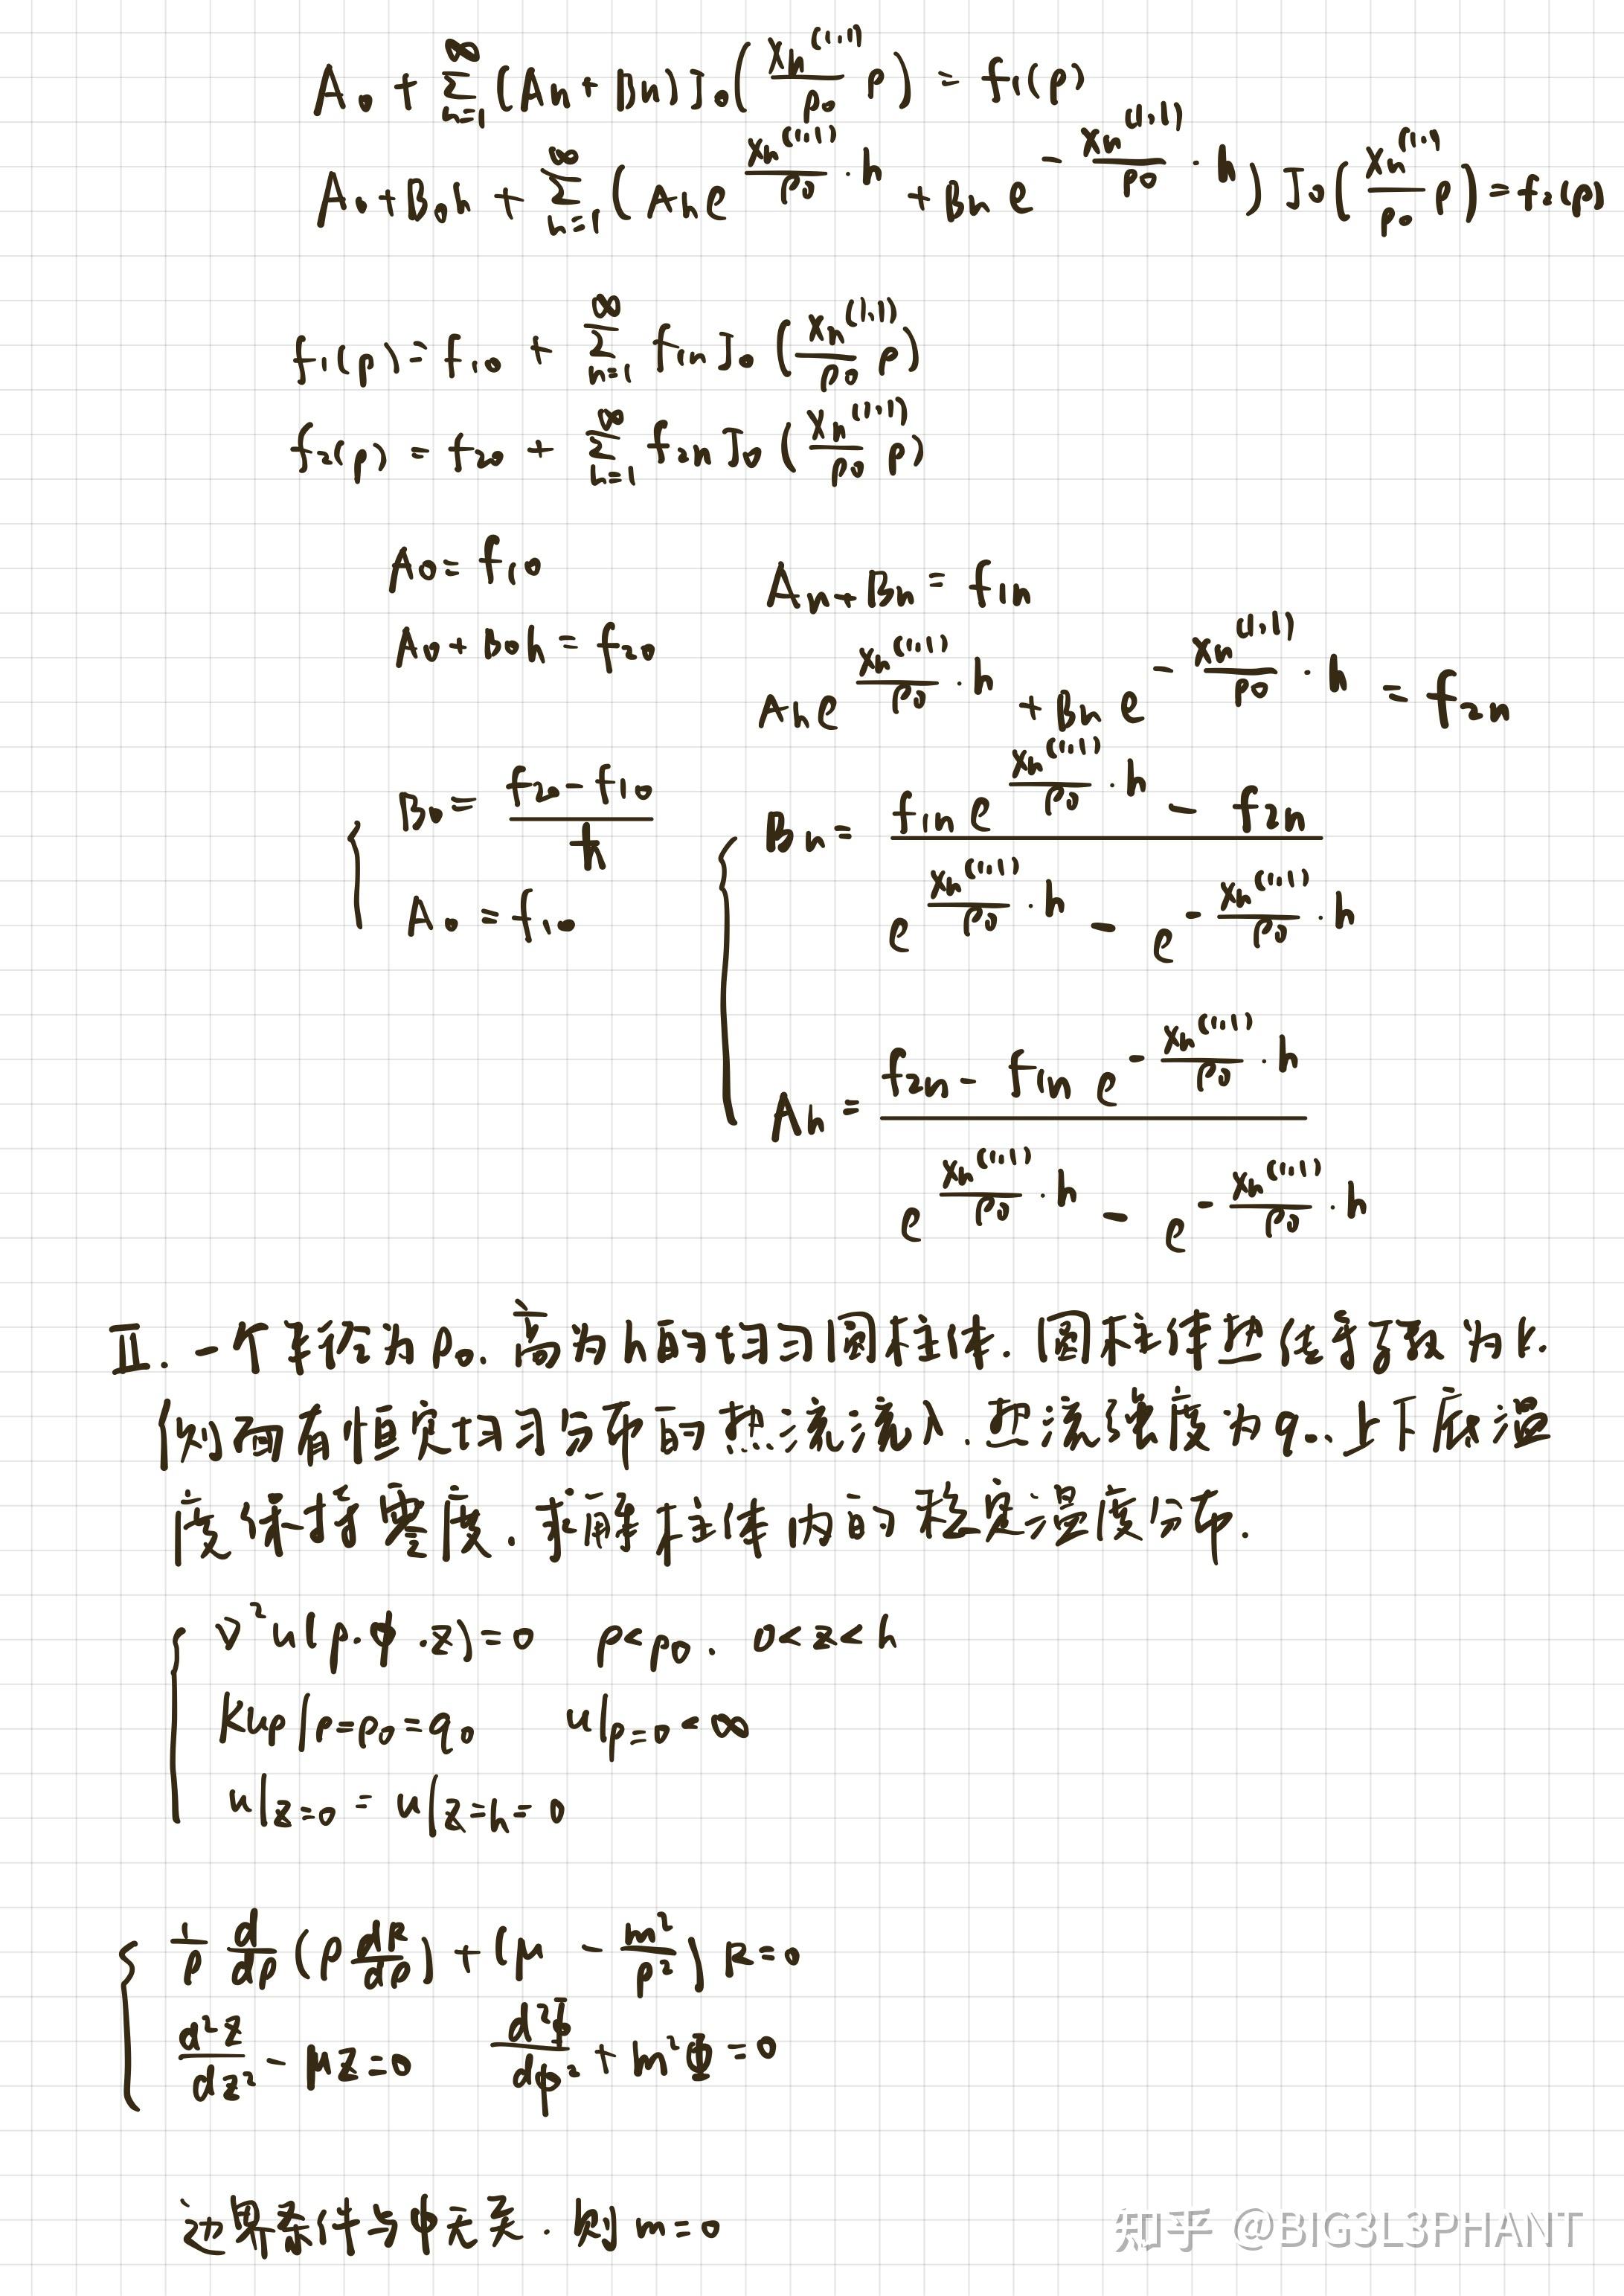 A₀ + ∑_{n=1}^{∞} (Aₙ + Bₙ) J₀(xₙ^{(1,1)}/ρ₀ ρ) = f₁(ρ)
A₀ + B₀h + ∑_{n=1}^{∞} (Aₙ e^{xₙ^{(1,1)}/ρ₀ · h} + Bₙ e^{-xₙ^{(1,1)}/ρ₀ · h}) J₀(xₙ^{(1,1)}/ρ₀ ρ) = f₂(ρ)
f₁(ρ) = f₁₀ + ∑_{n=1}^{∞} f₁ₙ J₀(xₙ^{(1,1)}/ρ₀ ρ)
f₂(ρ) = f₂₀ + ∑_{n=1}^{∞} f₂ₙ J₀(xₙ^{(1,1)}/ρ₀ ρ)
A₀ = f₁₀
A₀ + B₀h = f₂₀
Aₙ + Bₙ = f₁ₙ
Aₙ e^{xₙ^{(1,1)}/ρ₀ · h} + Bₙ e^{-xₙ^{(1,1)}/ρ₀ · h} = f₂ₙ
B₀ = (f₂₀ - f₁₀)/h
A₀ = f₁₀
Bₙ = (f₁ₙ e^{xₙ^{(1,1)}/ρ₀ · h} - f₂ₙ)/(e^{xₙ^{(1,1)}/ρ₀ · h} - e^{-xₙ^{(1,1)}/ρ₀ · h})
Aₙ = (f₂ₙ - f₁ₙ e^{-xₙ^{(1,1)}/ρ₀ · h})/(e^{xₙ^{(1,1)}/ρ₀ · h} - e^{-xₙ^{(1,1)}/ρ₀ · h})
Ⅱ. 一个半径为ρ₀. 高为h的均匀圆柱体. 圆柱体热传导系数为k.
侧面有恒定均匀分布的热流流入. 热流强度为q₀. 上下底温
度保持零度. 求解柱体内的稳定温度分布.
∇²u(ρ.φ.z) = 0 ρ<ρ₀. 0<z<h
Kuρ|ρ=ρ₀ = q₀ u|ρ=0 < ∞
u|z=0 = u|z=h = 0
1/ρ d/dρ (ρ dR/dρ) + (μ - m²/ρ²) R = 0
d²Z/dz² - μZ = 0 d²Φ/dφ² + m²Φ = 0
边界条件与φ无关. 则 m=0
知乎 @BIG3L3PHANT